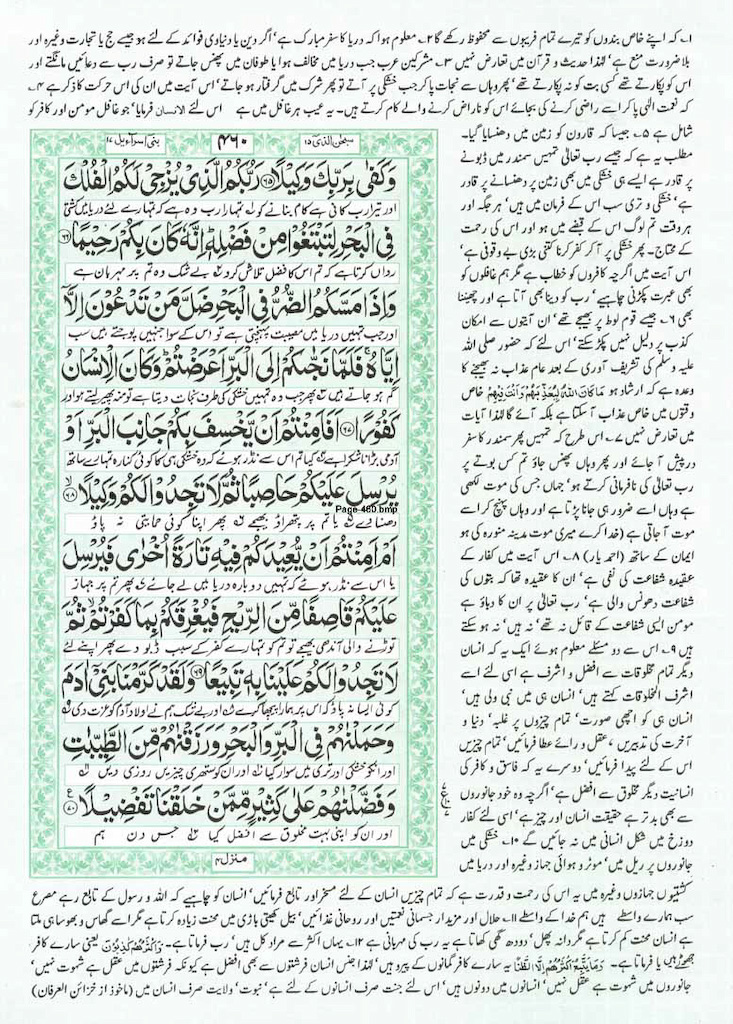 ۱؎ کہ اپنے خاص بندوں کو تیرے تمام فریبوں سے محفوظ رکھے گا ۲؎ معلوم ہوا کہ دریا کا سفر مبارک ہے' اگر دین یا دنیاوی فوائد کے لئے ہو جیسے حج یا تجارت وغیرہ اور
بلا ضرورت منع ہے' لہذا حدیث و قرآن میں تعارض نہیں ۳؎ مشرکین عرب جب دریا میں مخالف ہوا یا طوفان میں پھنس جاتے تو صرف رب سے دعائیں مانگتے اور
اس کو پکارتے تھے کسی بت کو نہ پکارتے تھے' پھر وہاں سے نجات پا کر جب خشکی پر آتے تو پھر شرک میں گرفتار ہو جاتے' اس آیت میں ان کی اس حرکت کا ذکر ہے ۴؎
کہ نعمت الٰہی پا کر اسے راضی کرنے کی بجائے اس کو ناراض کرنے والے کام کرتے ہیں۔ یہ عیب ہر غافل میں ہے اس لئے الانسان فرمایا' جو غافل مومن اور کافر کو
شامل ہے ۵؎ جیسا کہ قارون کو زمین میں دھنسایا گیا۔
مطلب یہ ہے کہ جیسے رب تعالیٰ تمہیں سمندر میں ڈبونے
پر قادر ہے ایسے ہی خشکی میں بھی زمین پر دھنسانے پر قادر
ہے' خشکی و تری سب اس کے فرمان میں ہیں' ہر جگہ اور
ہر وقت تم لوگ اس کے قبضے میں ہو اور اس کی رحمت
کے محتاج۔ پھر خشکی پر آ کر کفر کرنا کتنی بڑی بے وقوفی ہے'
اس آیت میں اگرچہ کافروں کو خطاب ہے مگر ہم غافلوں کو
بھی عبرت پکڑنی چاہیے' رب کو دینا بھی آتا ہے اور چھیننا
بھی ۶؎ جیسے قوم لوط پر بھیجے تھے' ان آیتوں سے امکان
کذب پر دلیل نہیں پکڑ سکتے' اس لئے کہ حضور صلی اللہ
علیہ و سلم کی تشریف آوری کے بعد عام عذاب نہ بھیجنے کا
وعدہ ہے کہ ارشاد ہو مَا کَانَ اللّٰہُ لِیُعَذِّبَهُمْ وَاَنْتَ فِیْهِمْ خاص
وقتوں میں خاص عذاب آ سکتا ہے بلکہ آئے گا لہذا آیات
میں تعارض نہیں ۷؎ اس طرح کہ تمہیں پھر سمندر کا سفر
درپیش آ جائے اور پھر وہاں پھنس جاؤ تم کس بوتے پر
رب تعالیٰ کی نافرمانی کرتے ہو' جہاں جس کی موت لکھی
ہے وہاں اسے ضرور ہی جانا پڑتا ہے اور وہاں پہنچ کر اسے
موت آ جاتی ہے (خدا کرے میری موت مدینہ منورہ کی ہو
ایمان کے ساتھ (احمد یار) ۸؎ اس آیت میں کفار کے
عقیدہ شفاعت کی نفی ہے' ان کا عقیدہ تھا کہ بتوں کی
شفاعت دھونس والی ہے' رب تعالیٰ پر ان کا دباؤ ہے
مومن ایسی شفاعت کے قائل نہ تھے' نہ ہیں' نہ ہو سکتے
ہیں ۹؎ اس سے دو مسئلے معلوم ہوئے ایک یہ کہ انسان
دیگر تمام مخلوقات سے افضل و اشرف ہے اسی لئے اسے
اشرف المخلوقات کہتے ہیں' انسان ہی میں نبی ولی ہیں'
انسان ہی کو اچھی صورت' تمام چیزوں پر غلبہ' دنیا و
آخرت کی تدبیریں' عقل و رائے عطا فرمائیں' تمام چیزیں
اس کے لئے پیدا فرمائیں' دوسرے یہ کہ فاسق و کافر کی
انسانیت دیگر مخلوق سے افضل ہے' اگرچہ وہ خود جانوروں
سے بھی بدتر ہے حقیقت انسان اور چیز ہے' اسی لئے کفار
دوزخ میں شکل انسانی میں نہ جائیں گے ۱۰؎ خشکی میں
جانوروں پر ریل میں' موٹر و ہوائی جہاز وغیرہ اور دریا میں
سبحٰن الذی ۱۵
۴۶۰
بنی اسرآءیل ۱۷
وَكَفٰى بِرَبِّكَ وَكِيْلًا ﴿۶۵﴾ رَبُّكُمُ الَّذِىْ يُزْجِىْ لَكُمُ الْفُلْكَ
اور تیرا رب کافی ہے کام بنانے کو ۱؎ تمہارا رب وہ ہے کہ تمہارے لئے دریا میں کشتی
فِى الْبَحْرِ لِتَبْتَغُوْا مِنْ فَضْلِهٖ ؕ اِنَّهٗ كَانَ بِكُمْ رَحِيْمًا ﴿۶۶﴾
رواں کرتا ہے کہ تم اس کا فضل تلاش کرو ۲؎ بے شک وہ تم پر مہربان ہے
وَاِذَا مَسَّكُمُ الضُّرُّ فِى الْبَحْرِ ضَلَّ مَنْ تَدْعُوْنَ اِلَّاۤ
اور جب تمہیں دریا میں مصیبت پہنچتی ہے تو اس کے سوا جنہیں پوجتے ہیں سب
اِيَّاهُ ۚ فَلَمَّا نَجّٰىكُمْ اِلَى الْبَرِّ اَعْرَضْتُمْ ؕ وَكَانَ الْاِنْسَانُ
گم ہو جاتے ہیں ۳؎ پھر جب وہ تمہیں خشکی کی طرف نجات دیتا ہے تو منہ پھیر لیتے ہو اور
كَفُوْرًا ﴿۶۷﴾ اَفَاَمِنْتُمْ اَنْ يَّخْسِفَ بِكُمْ جَانِبَ الْبَرِّ اَوْ
آدمی بڑا ناشکرا ہے ۴؎ کیا تم اس سے نڈر ہوئے کہ وہ خشکی ہی کا کوئی کنارہ تمہارے ساتھ
يُرْسِلَ عَلَيْكُمْ حَاصِبًا ثُمَّ لَا تَجِدُوْا لَكُمْ وَكِيْلًا ﴿۶۸﴾
Page-460.bmp
دھنسا دے ۵؎ یا تم پر پتھراؤ بھیجے ۶؎ پھر اپنا کوئی حمایتی نہ پاؤ
اَمْ اَمِنْتُمْ اَنْ يُّعِيْدَكُمْ فِيْهِ تَارَةً اُخْرٰى فَيُرْسِلَ
یا اس سے نڈر ہوئے کہ تمہیں دوبارہ دریا میں لے جائے ۷؎ پھر تم پر جہاز
عَلَيْكُمْ قَاصِفًا مِّنَ الرِّيْحِ فَيُغْرِقَكُمْ بِمَا كَفَرْتُمْ ۙ ثُمَّ
توڑنے والی آندھی بھیجے تو تم کو تمہارے کفر کے سبب ڈبو دے پھر اپنے لئے
لَا تَجِدُوْا لَكُمْ عَلَيْنَا بِهٖ تَبِيْعًا ﴿۶۹﴾ وَلَقَدْ كَرَّمْنَا بَنِىْۤ اٰدَمَ
کوئی ایسا نہ پاؤ کہ اس پر ہمارا پیچھا کرے ۸؎ اور بے شک ہم نے اولاد آدم کو عزت دی ۹؎
وَحَمَلْنٰهُمْ فِى الْبَرِّ وَالْبَحْرِ وَرَزَقْنٰهُمْ مِّنَ الطَّيِّبٰتِ
اور انکو خشکی اور تری میں سوار کیا ۱۰؎ اور ان کو ستھری چیزیں روزی دیں ۱۱؎
وَفَضَّلْنٰهُمْ عَلٰى كَثِيْرٍ مِّمَّنْ خَلَقْنَا تَفْضِيْلًا ﴿۷۰﴾
اور ان کو اپنی بہت مخلوق سے افضل کیا ۱۲؎ جس دن ہم
منزل ۴
کشتیوں جہازوں وغیرہ میں یہ اس کی رحمت و قدرت ہے کہ تمام چیزیں انسان کے لئے مسخر اور تابع فرمائیں' انسان کو چاہیے کہ اللہ و رسول کے تابع رہے مصرع
سب ہمارے واسطے ہیں ہم خدا کے واسطے ۱۱؎ حلال اور مزیدار جسمانی نعمتیں اور روحانی غذائیں' بیل کھیتی باڑی میں محنت زیادہ کرتا ہے مگر اسے گھاس و بھوسا ہی ملتا
ہے انسان محنت کم کرتا ہے مگر دانہ پھل' دودھ گھی کھاتا ہے یہ رب کی مہربانی ہے ۱۲؎ یہاں اکثر سے مراد کل ہیں' رب فرماتا ہے۔ وَاَکْثَرُهُمْ کٰذِبُوْنَ یعنی سارے کافر
جھوٹے ہیں یا فرماتا ہے۔ وَمَا یَتَّبِعُ اَکْثَرُهُمْ اِلَّا ظَنًّا یہ سارے کافر گمانوں کے پیرو ہیں' لہذا جنس انسان فرشتوں سے بھی افضل ہے کیونکہ فرشتوں میں عقل ہے شہوت نہیں'
جانوروں میں شہوت ہے عقل نہیں' انسانوں میں دونوں ہیں' اس لئے جنت صرف انسانوں کے لئے ہے' نبوت' ولایت صرف انسان میں ہیں (ماخوذ از خزائن العرفان)